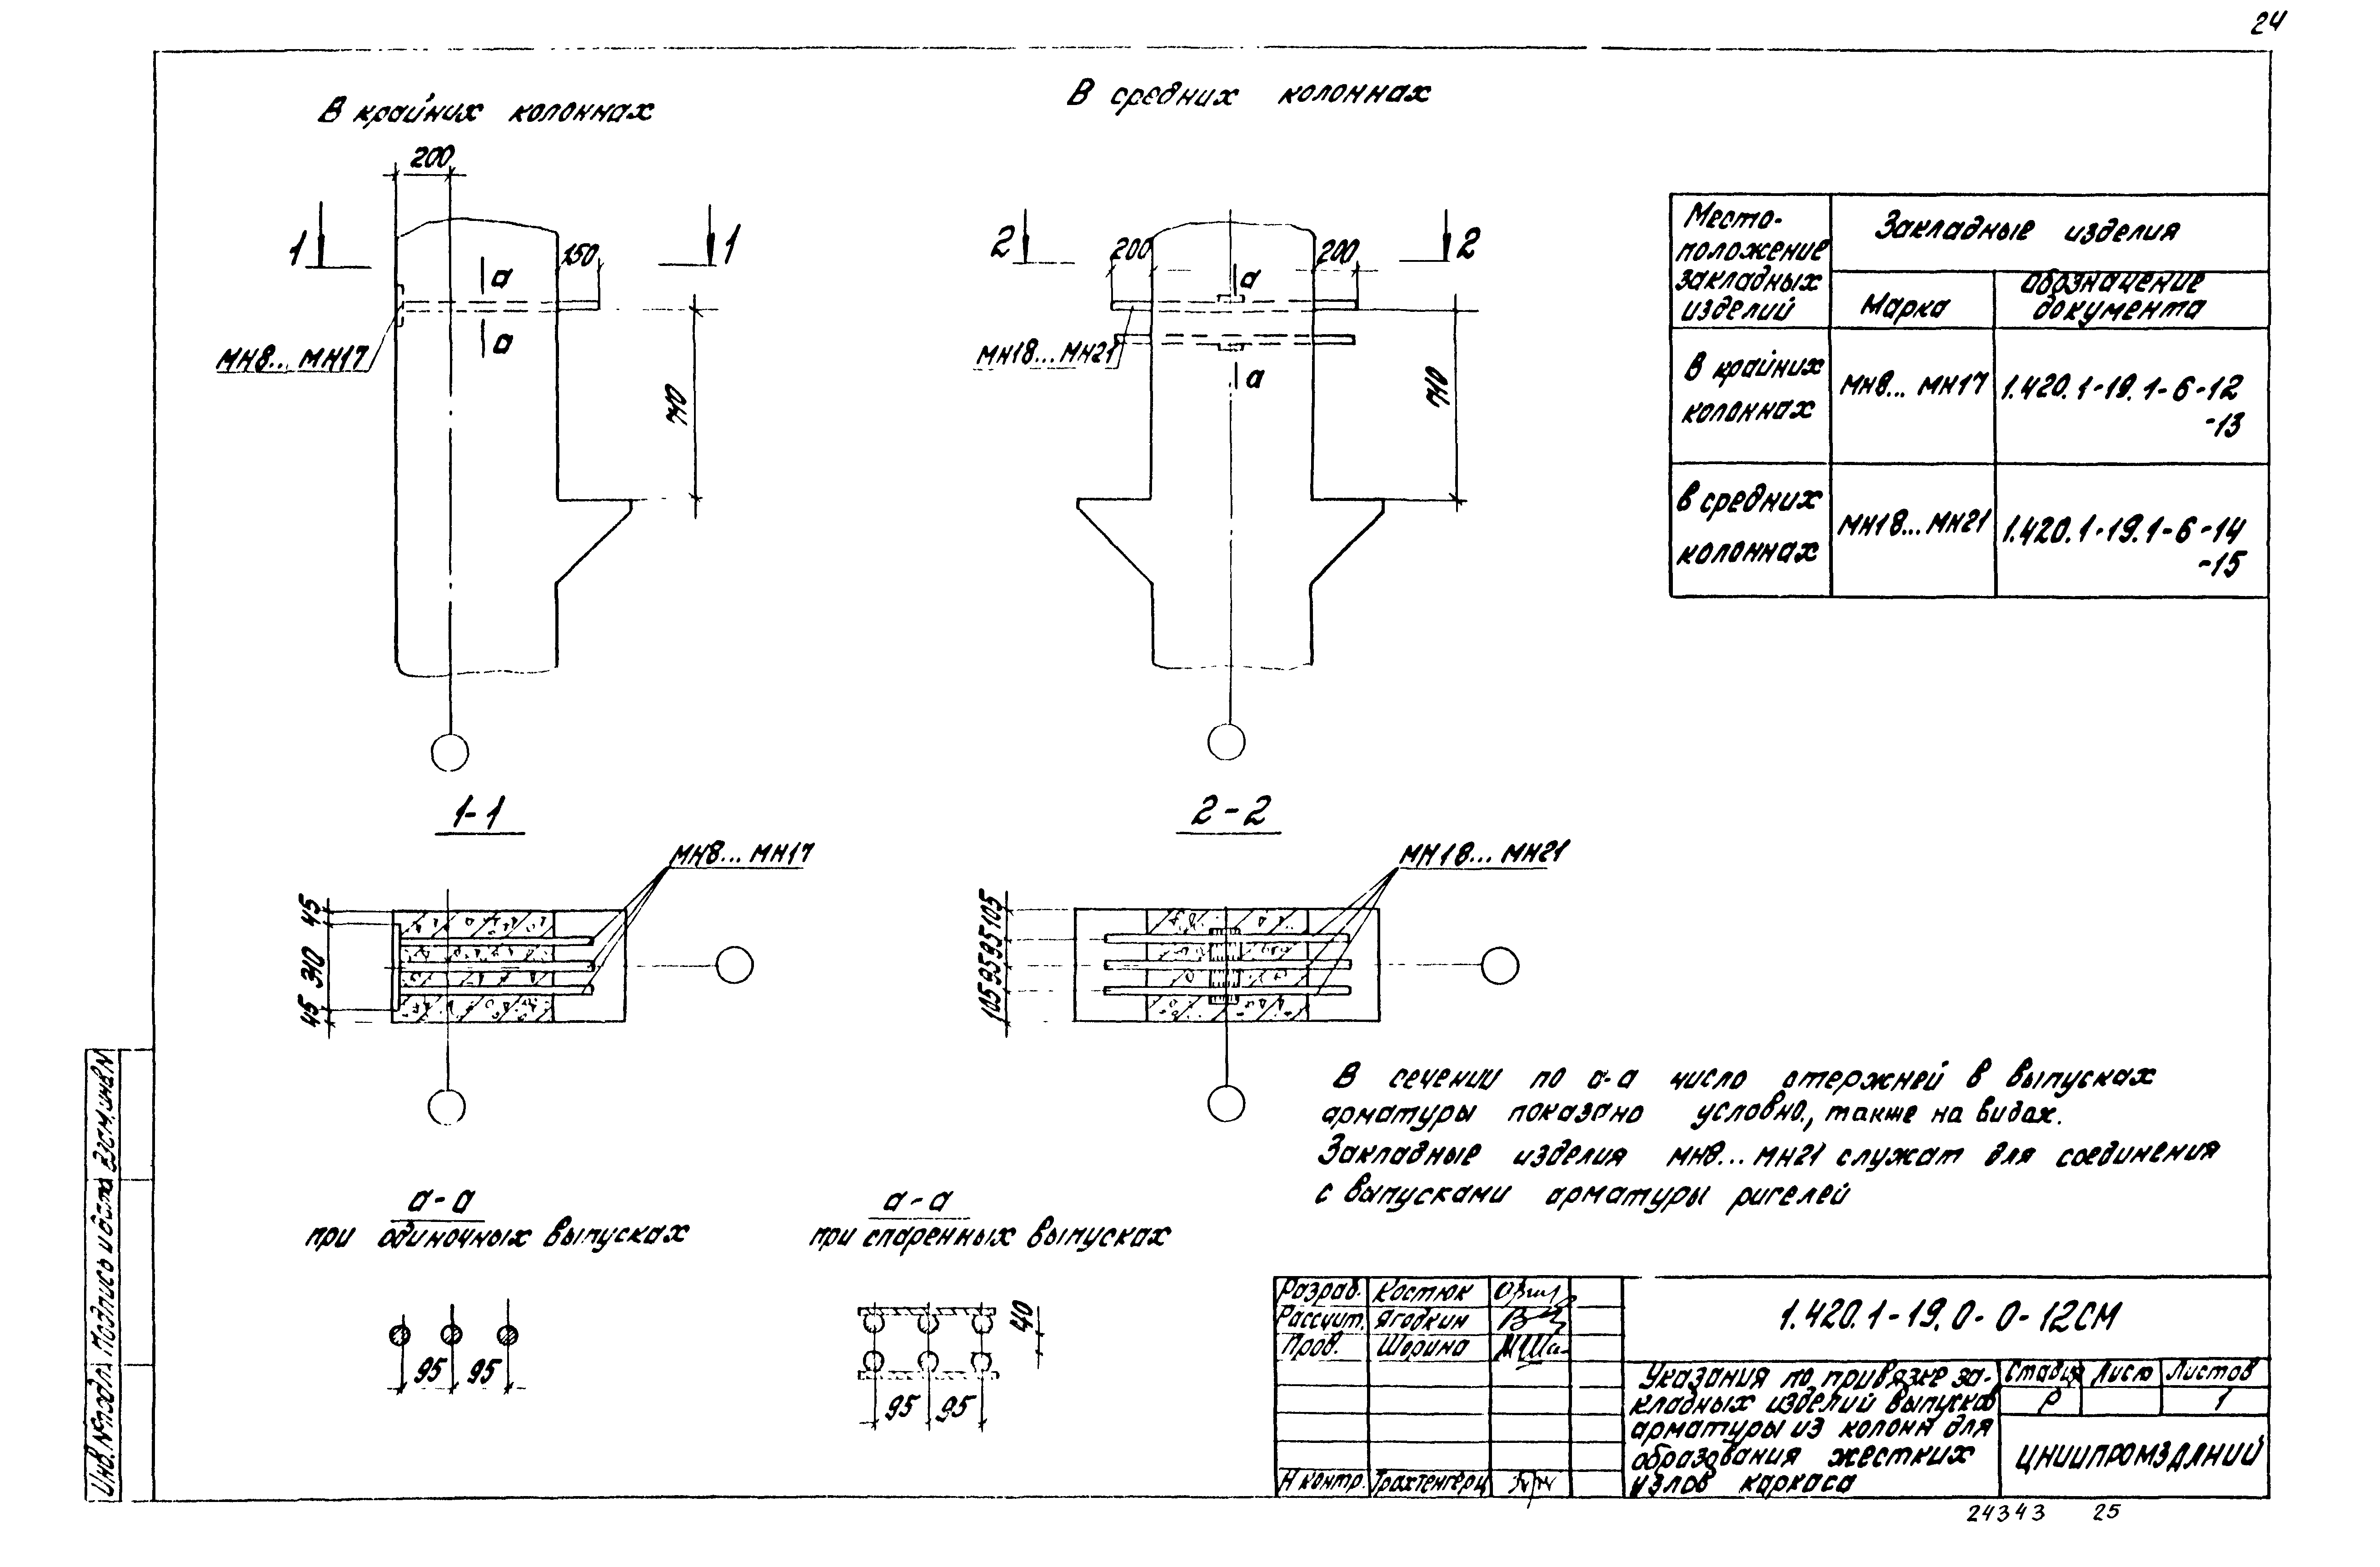 24
В крайних колоннах
200
1
1
150
а
а
МН8... МН17
710
В средних колоннах
2
2
200
200
а
а
МН18... МН21
710
Место-
положение
закладных
изделий
Закладные изделия
Марка
обозначение
документа
В крайних
колоннах
МН8... МН17
1.420.1-19.1-6-12
-13
в средних
колоннах
МН18... МН21
1.420.1-19.1-6-14
-15
1-1
МН8... МН17
45
310
45
2-2
МН18... МН21
105
95
95
105
В сечении по а-а число стержней в выпусках
арматуры показано условно., также на видах.
Закладные изделия МН8... МН21 служат для соединения
с выпусками арматуры ригелей
а-а
при одиночных выпусках
95 95
а-а
при спаренных выпусках
40
95 95
Разраб. Костюк
Рассчит. Ягодкин
Пров. Шорина
Н контр. Трахтенгерц
1.420.1-19.0-0-12СМ
Указания по привязке за-
кладных изделий выпусков
арматуры из колонн для
образования жестких
узлов каркаса
Стадия Лист Листов
Р 1
ЦНИИПРОМЗДАНИЙ
Инв. № подл. Подпись и дата Взам.инв.N
24343 25